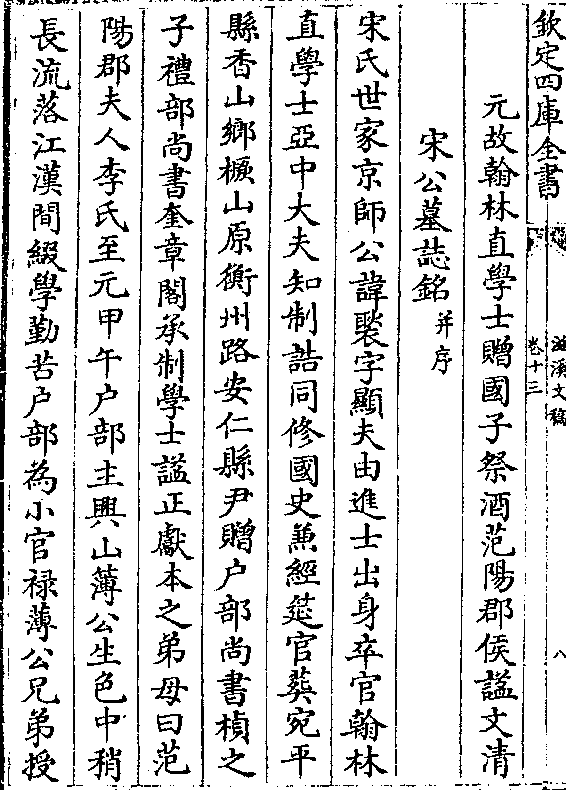 欽定四庫全書
滋溪文稿
卷十三
八
元故翰林直學士贈國子祭酒范陽郡侯諡文清
宋公墓誌銘并序
宋氏世家京師公諱褧字顯夫由進士出身卒官翰林
直學士亞中大夫知制誥同修國史兼經筵官葬宛平
縣香山鄉橛山原衡州路安仁縣尹贈户部尚書楨之
子禮部尚書奎章閣承制學士諡正獻本之弟母曰范
陽郡夫人李氏至元甲午户部主興山薄公生色中稍
長流落江漢間綴學勤苦户部為小官禄薄公兄弟授